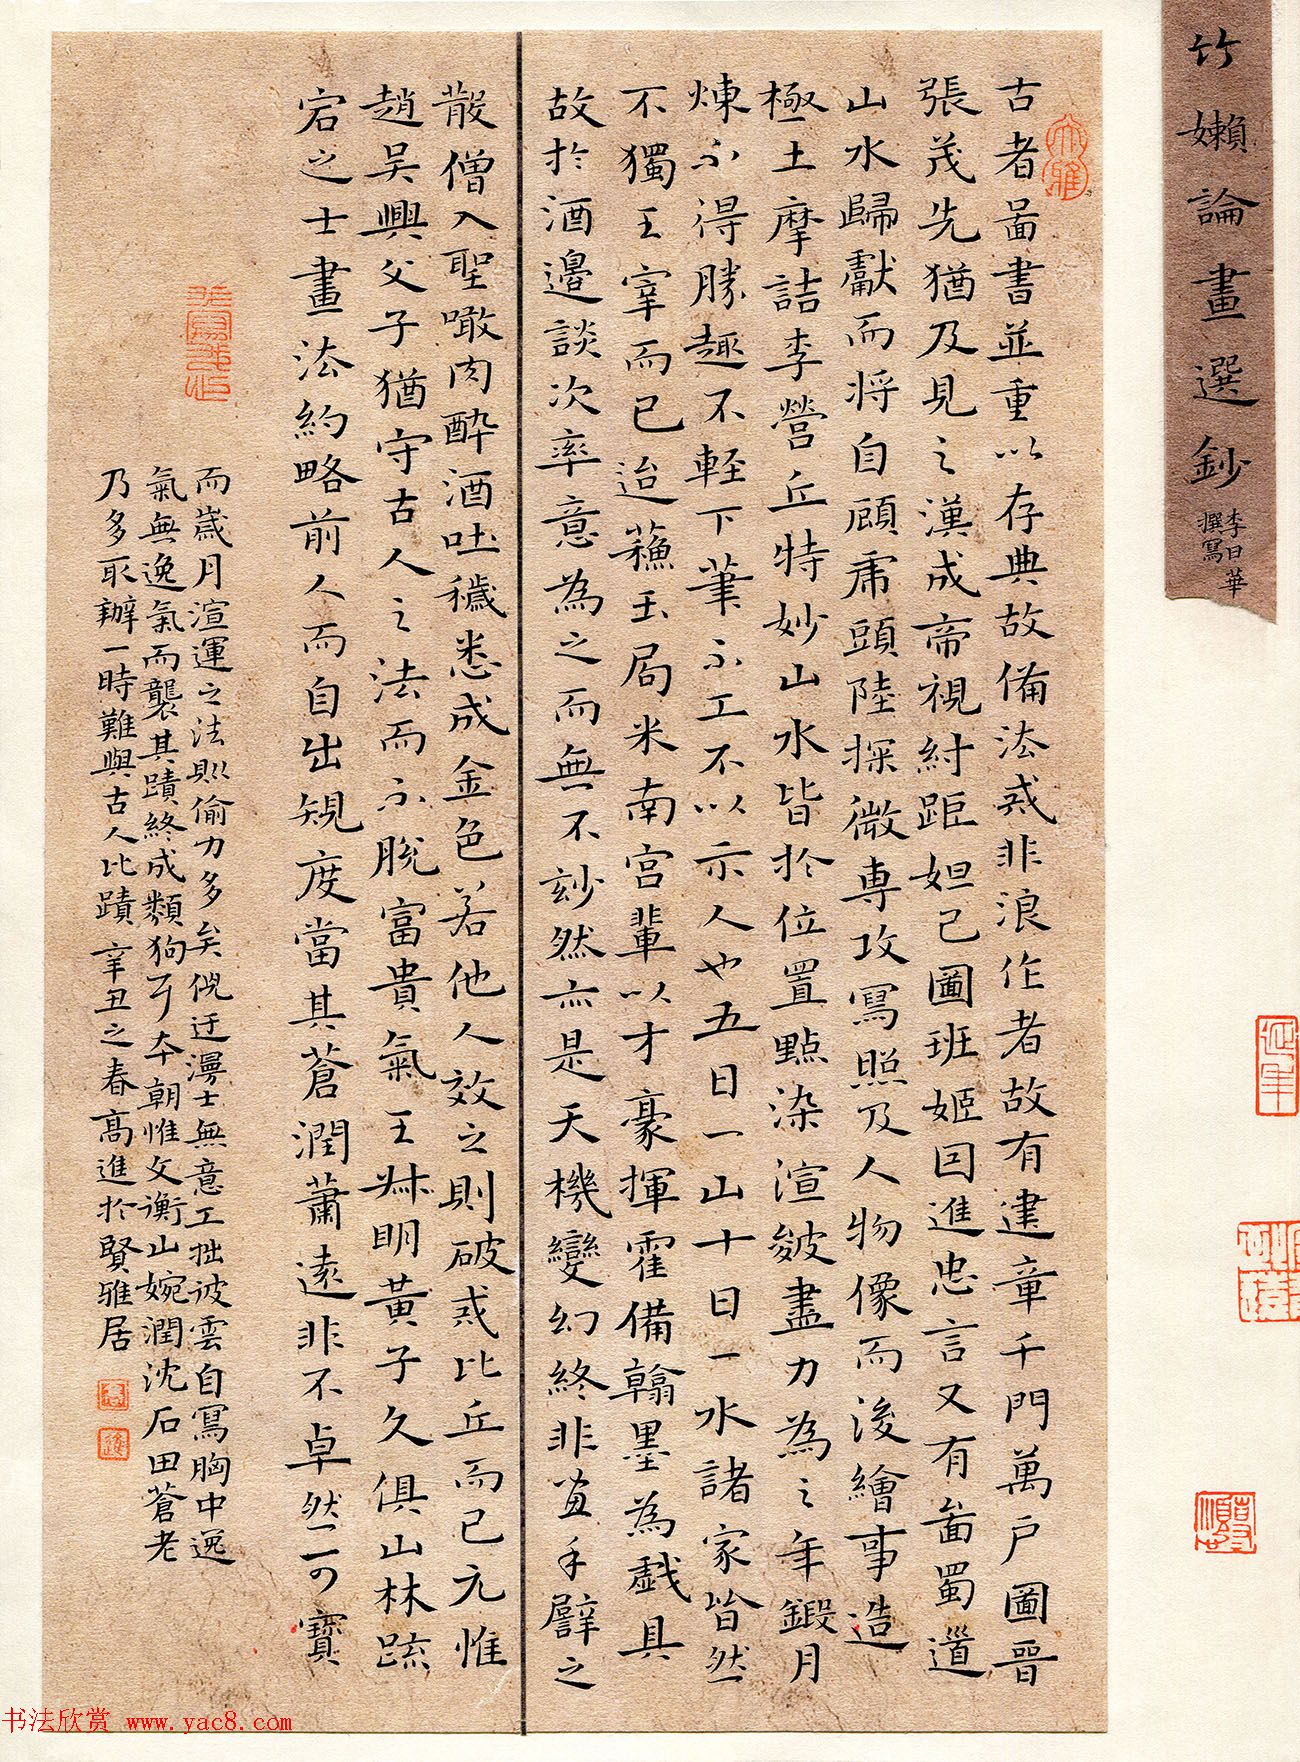 竹嬾論畫選鈔
李日華
撰寫
古者啚書並重以存典故備法戒非浪作者故有建章千門萬戶圖晉
張茂先猶及見之漢成帝視紂距妲己圖班姬因進忠言又有畫蜀道
山水歸獻而將自顧虎頭陸探微專攻寫照及人物像而後繪事造
極王摩詰李營丘特妙山水皆於位置點染渲皴盡力為之年鍛月
煉不得勝趣不輕下筆不工不以示人也五日一山十日一水諸家皆然
不獨王宰而已迨蘓玉局米南宮輩以才豪揮霍備翰墨為戲具
故於酒邊談次率意為之而無不玅然亦是天機變幻終非畫手譬之
散僧入聖噉肉醉酒吐穢悉成金色若他人效之則破戒比丘而已元惟
趙吳興父子猶守古人之法而不脫富貴氣王叔明黃子久俱山林踈
宕之士畫法約略前人而自出規度當其蒼潤蕭遠非不卓然可寶
而歲月渲運之法則偷力多矣倪迂漫士無意工拙彼雲自寫胸中逸
氣無逸氣而襲其蹟終成類狗耳本朝惟文衡山婉潤沈石田蒼老
乃多取辦一時難與古人比蹟 辛丑之春高進於賢雅居
大雅
高
進
延年
书法欣赏 www.yac8.com